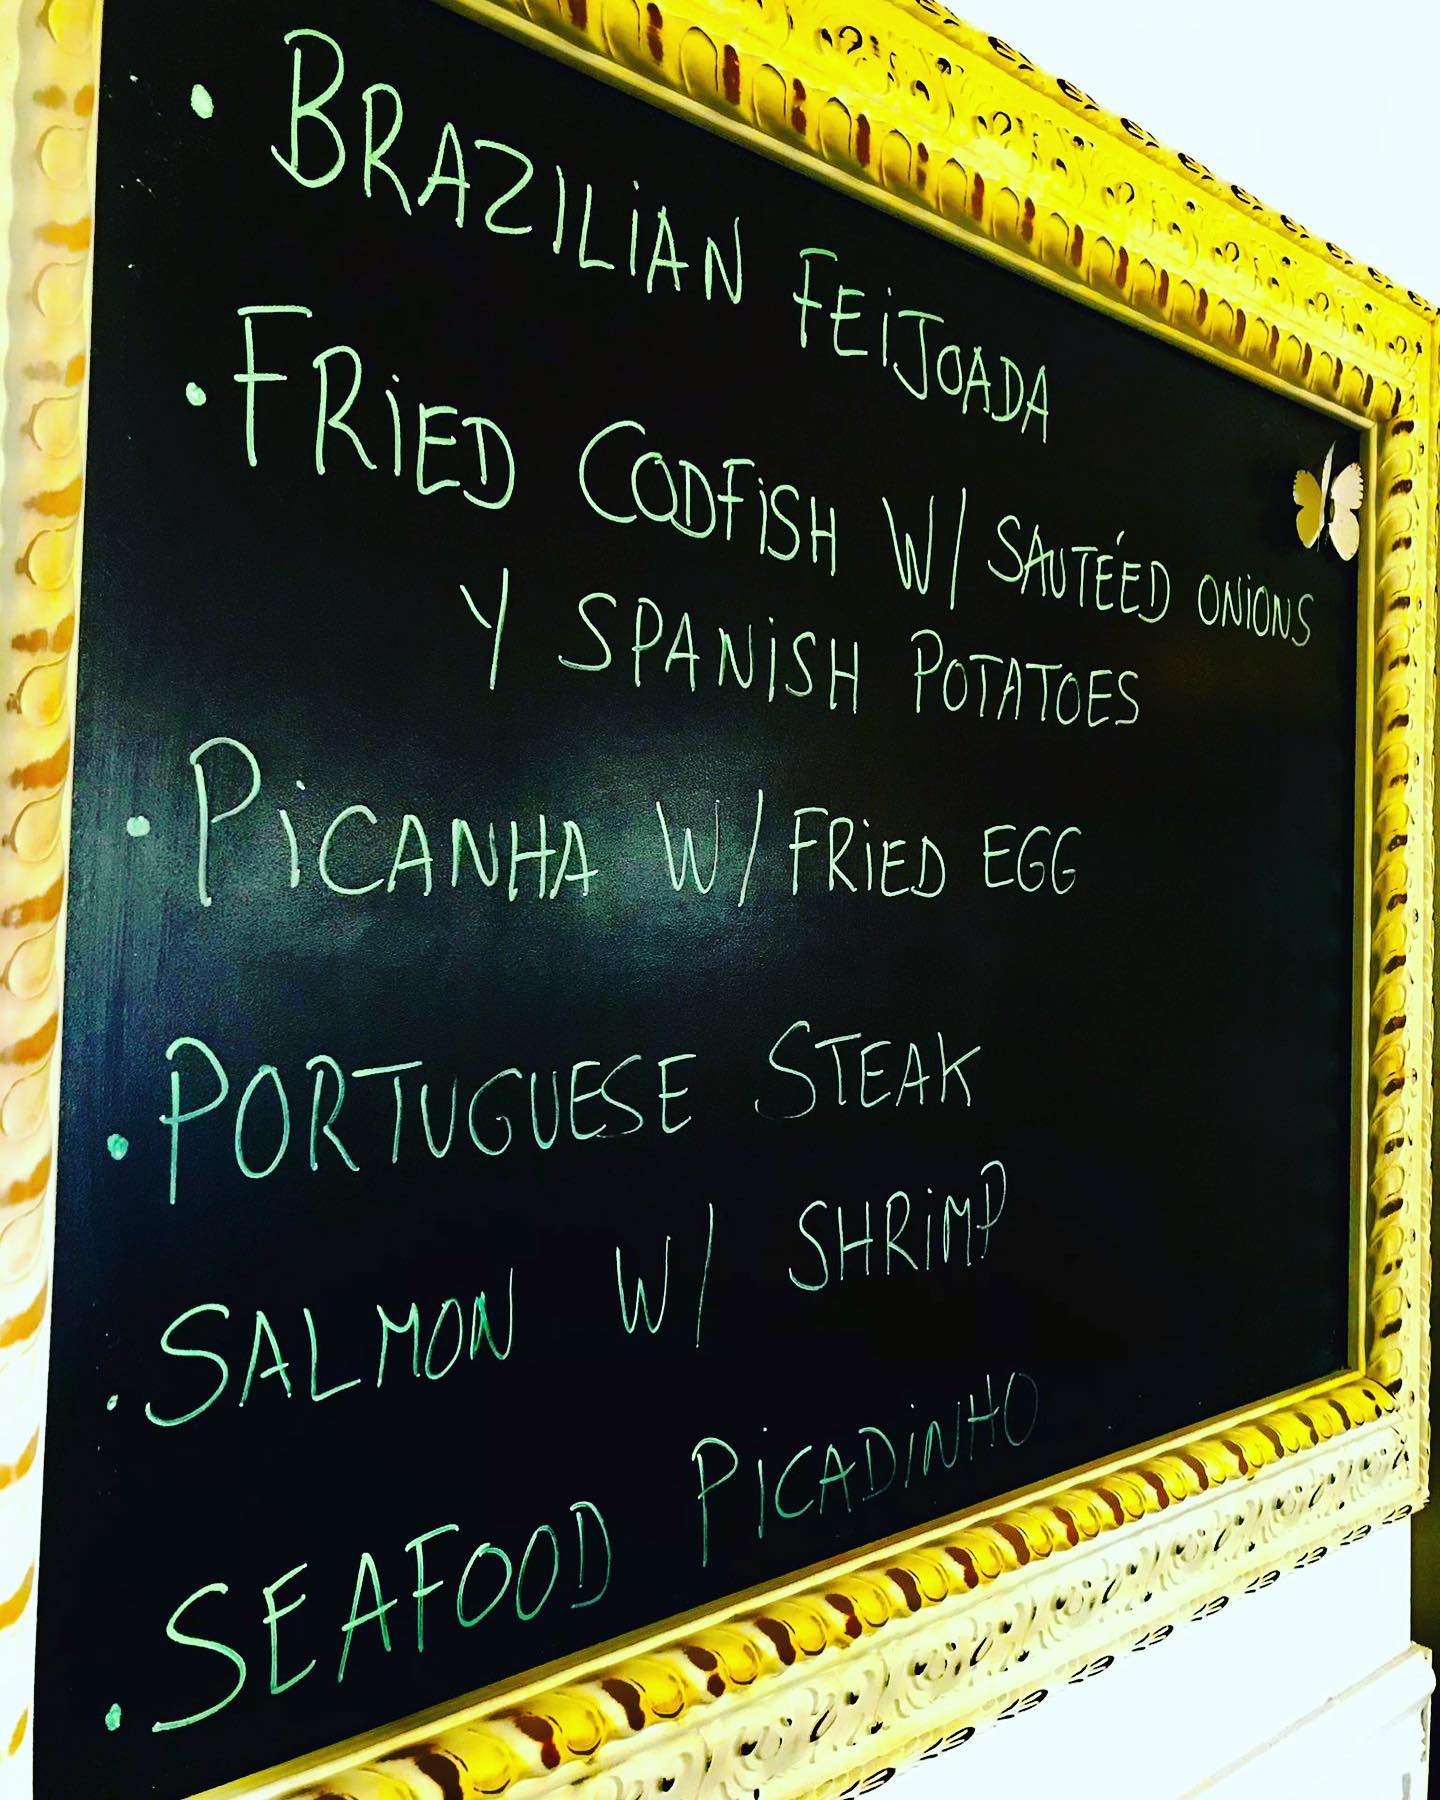 • BRAZILIAN FEIJOADA
• FRIED CODFISH W/ SAUTÉED ONIONS
Y SPANISH POTATOES
• PICANHA W/ FRIED EGG
• PORTUGUESE STEAK
• SALMON W/ SHRIMP
• SEAFOOD PICADINHO